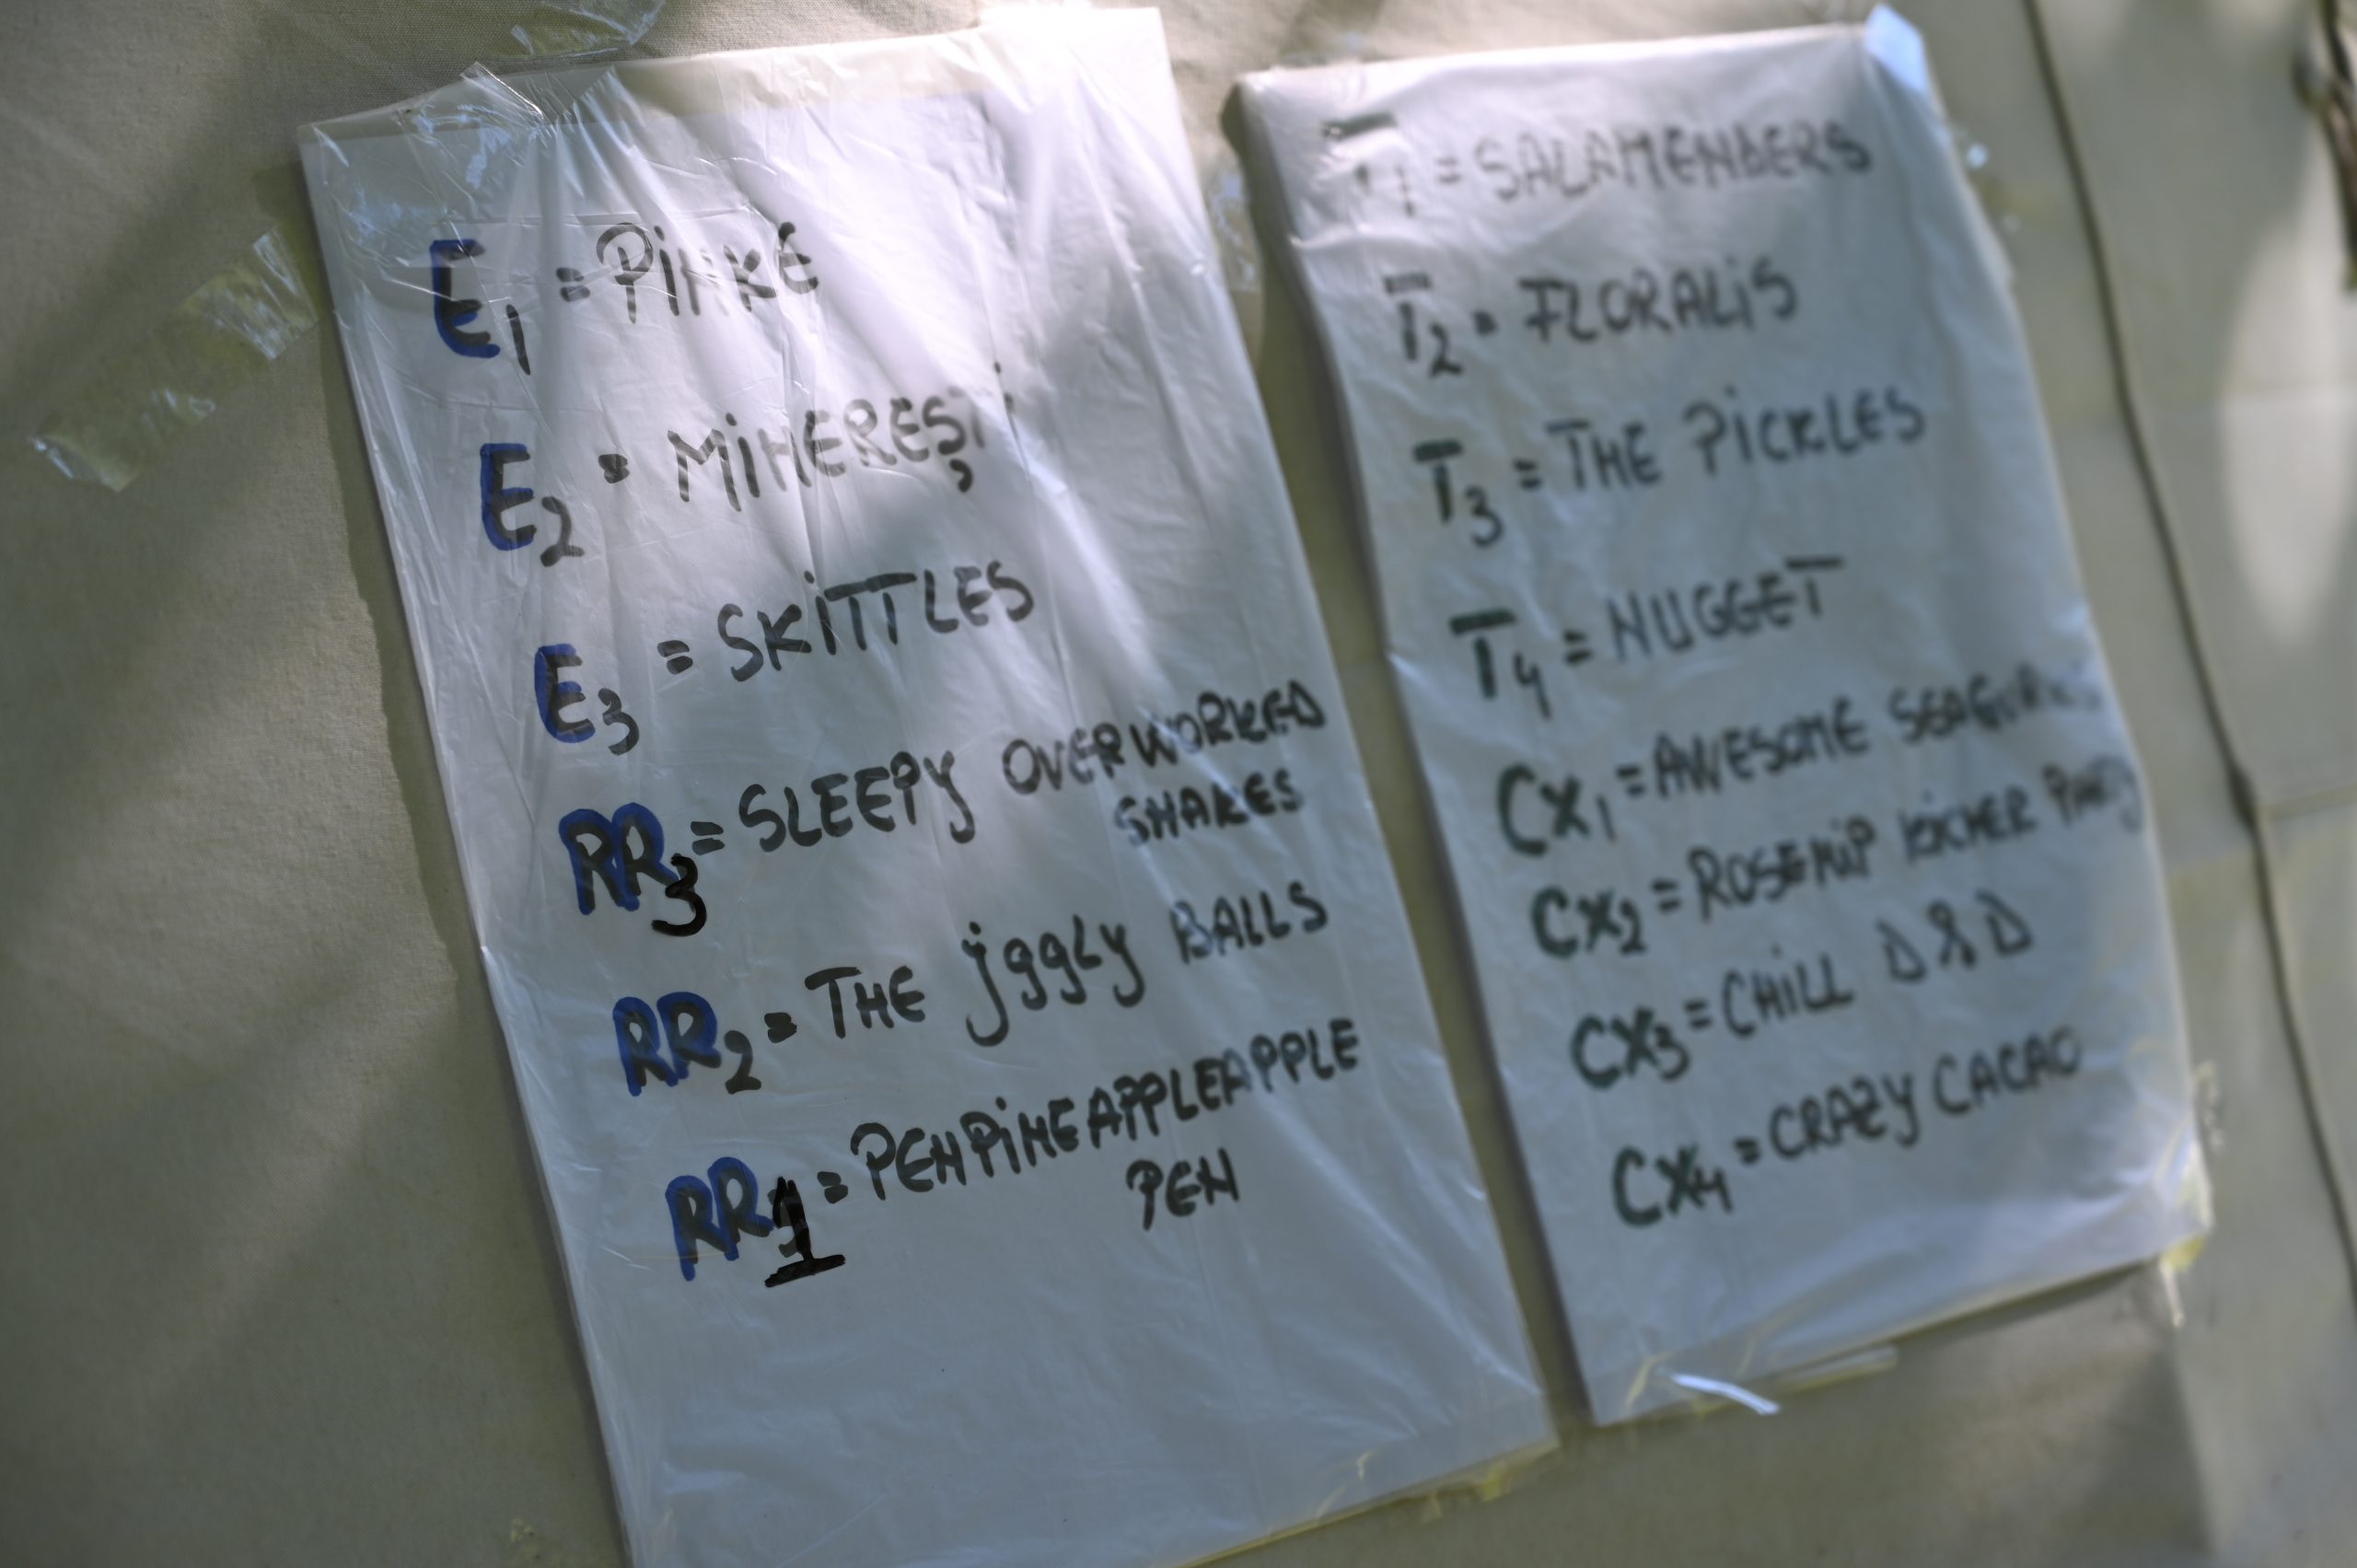 E1 = PiNKE
E2 = MiNEREȘTi
E3 = SKiTTLES
RR3 = SLEEPY OVERWORKED
SNAKES
RR2 = THE jggly BALLS
RR1 = PENPiNEAPPLEAPPLE
PEN
T1 = SALAMENDERS
T2 = FLORALiS
T3 = THE PiCKLES
T4 = NUGGET
CX1 = AWESOME
CX2 = ROSEHiP
CX3 = CHiLL D&D
CX4 = CRAZY CACAO